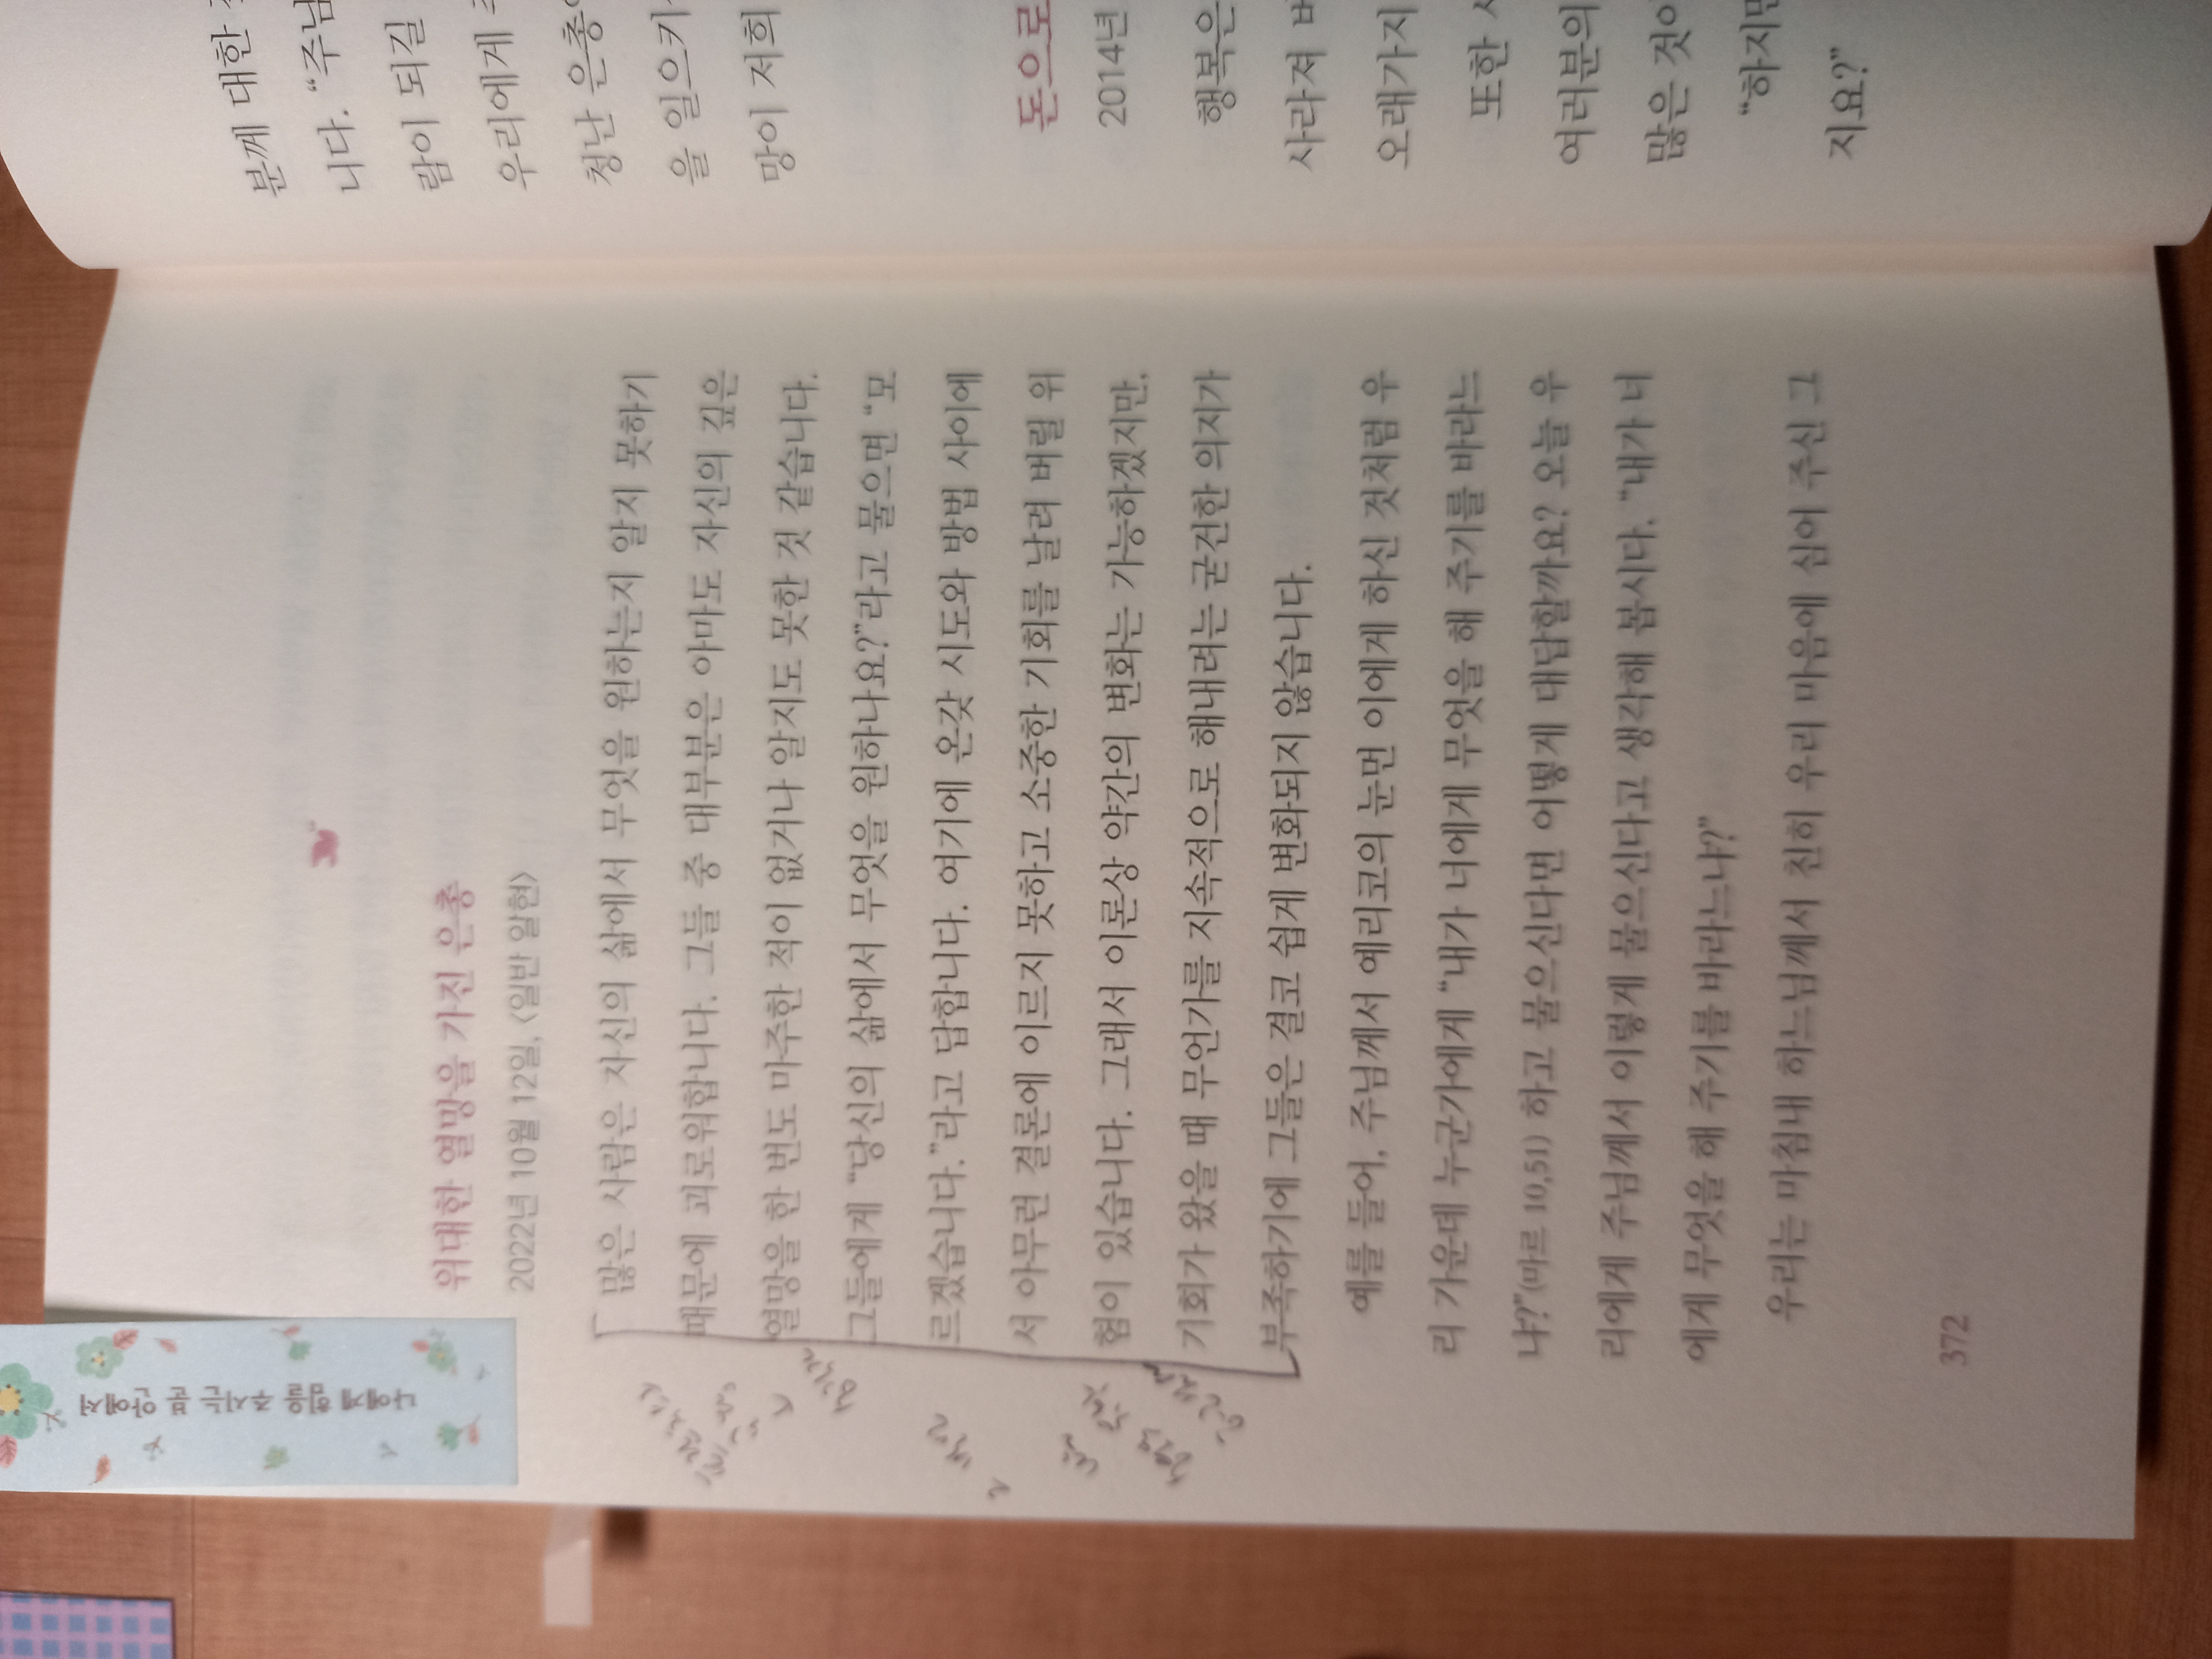 위대한 열망을 가진 은총
2022년 10월 12일, 〈일반 알현〉
많은 사람은 자신의 삶에서 무엇을 원하는지 알지 못하기
때문에 괴로워합니다. 그들 중 대부분은 아마도 자신의 깊은
열망을 한 번도 마주한 적이 없거나 알지도 못한 것 같습니다.
그들에게 “당신의 삶에서 무엇을 원하나요?”라고 물으면 “모
르겠습니다.”라고 답합니다. 여기에 온갖 시도와 방법 사이에
서 아무런 결론에 이르지 못하고 소중한 기회를 날려 버릴 위
험이 있습니다. 그래서 이론상 약간의 변화는 가능하겠지만,
기회가 왔을 때 무언가를 지속적으로 해내려는 굳건한 의지가
부족하기에 그들은 결코 쉽게 변화되지 않습니다.
예를 들어, 주님께서 예리코의 눈먼 이에게 하신 것처럼 우
리 가운데 누군가에게 “내가 너에게 무엇을 해 주기를 바라느
냐?”(마르 10,51) 하고 물으신다면 어떻게 대답할까요? 오늘 우
리에게 주님께서 이렇게 물으신다고 생각해 봅시다. “내가 너
에게 무엇을 해 주기를 바라느냐?”
우리는 마침내 하느님께서 친히 우리 마음에 심어 주신 그
372
나에게 힘을 주시는 분 안에서
분께 대한
니다. “주님
람이 되길
우리에게
청난 은총
을 일으키
망이 저희
돈으로
2014년
행복은
사라져
오래가지
또한
여러분의
많은 것이
“하지만
지요?”